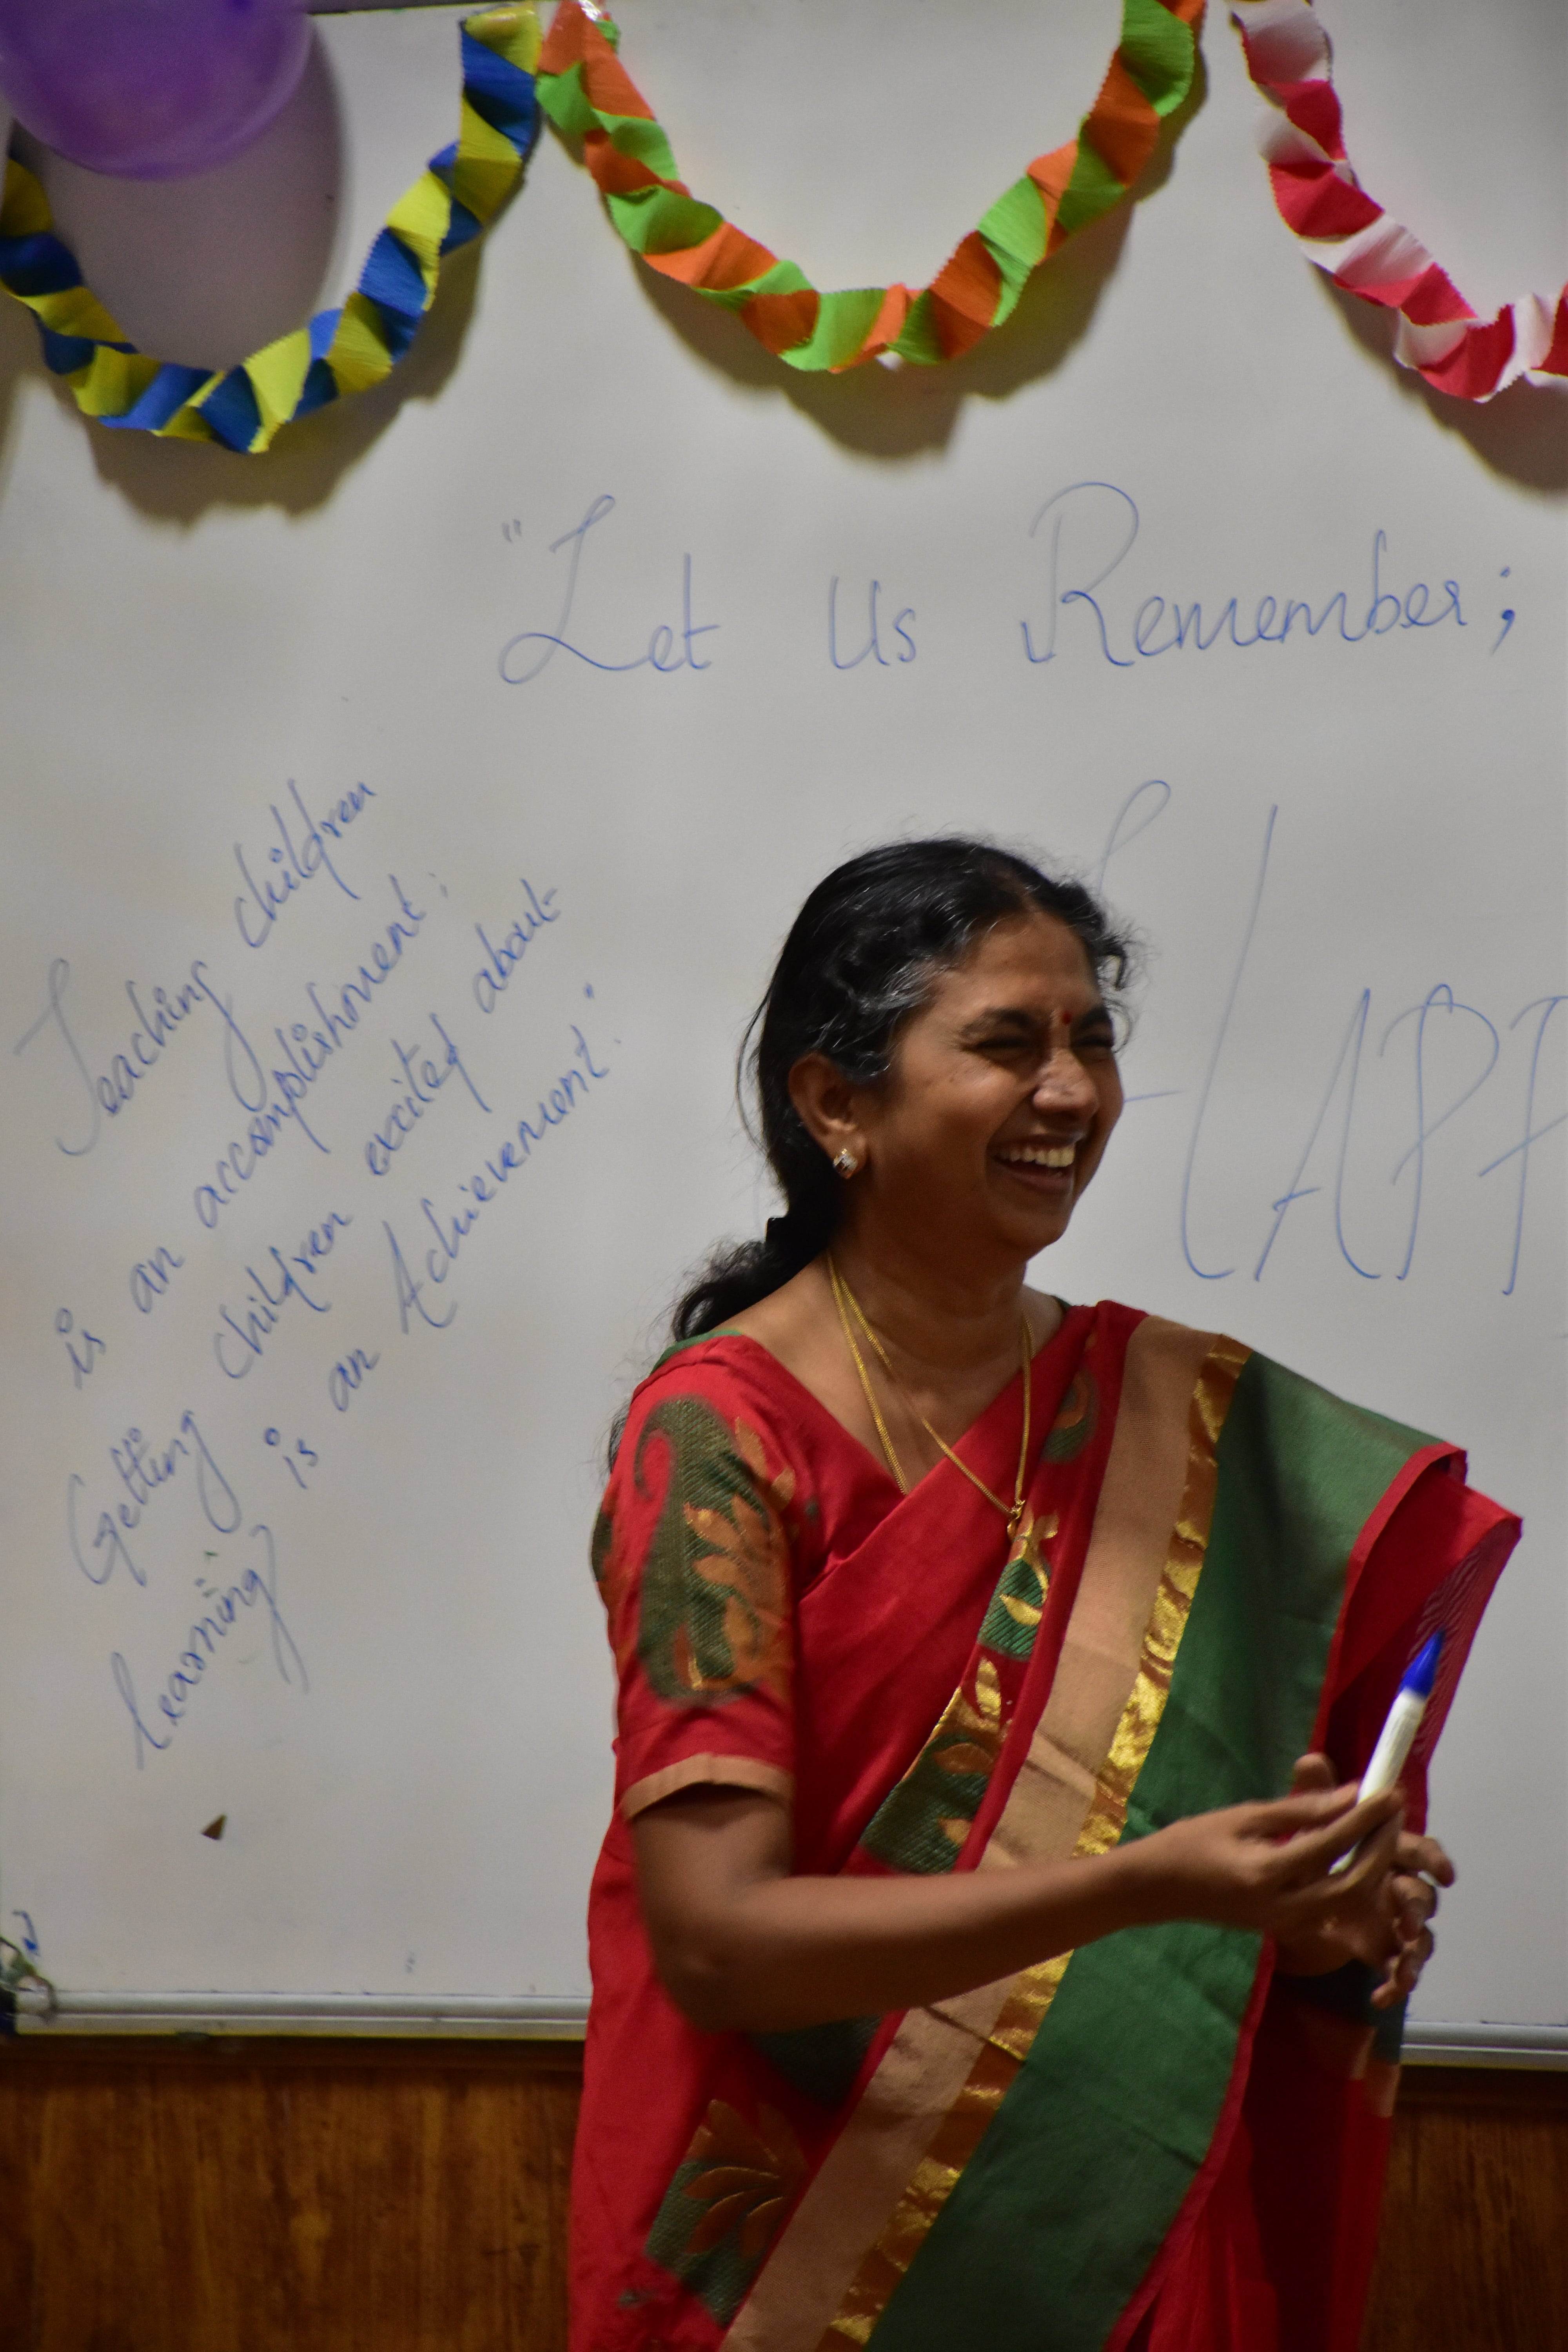 "Let Us Remember;
Teaching children
is an accomplishment;
Getting children excited about
learning; is an Achievement."
HAPP